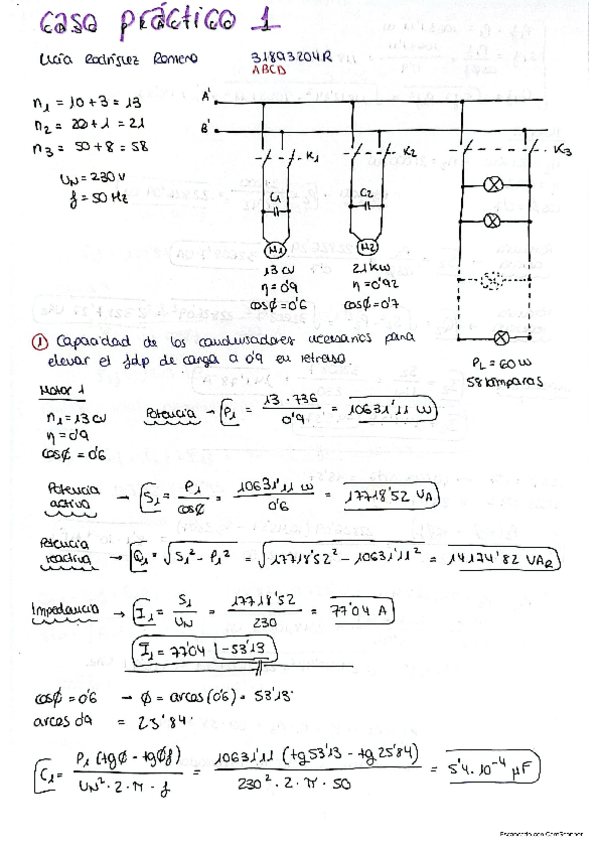 caso práctico 1
Lucía Rodríguez Romero 31893204R
ABCD
n1 = 10 + 3 = 13
n2 = 20 + 1 = 21
n3 = 50 + 8 = 58
UN = 230 V
f = 50 Hz
A'
B'
K1 K2 K3
C1 C2
M1 M2
13 CV 21 KW
η = 0'9 η = 0'92
cosϕ = 0'6 cosϕ = 0'7
PL = 60 W
58 lámparas
① Capacidad de los condensadores necesarios para
elevar el fdp de carga a 0'9 en retraso.
Motor 1
n1 = 13 CV
η = 0'9
cosϕ = 0'6
Potencia → P1 = 13 · 736 / 0'9 = 10631'11 W
Potencia activa → S1 = P1 / cosϕ = 10631'11 W / 0'6 = 17718'52 VA
Potencia reactiva → Q1 = √S1² - P1² = √17718'52² - 10631'11² = 14174'82 VAR
Impedancia → I1 = S1 / UN = 17718'52 / 230 = 77'04 A
I1 = 77'04 |-53'13
cosϕ = 0'6 → ϕ = arcos (0'6) = 53'13°
arcos 0'9 = 25'84°
C1 = P1 (tgϕ - tgϕf) / UN² · 2 · π · f = 10631'11 (tg 53'13 - tg 25'84) / 230² · 2 · π · 50 = 5'4 · 10⁻⁴ μF
Escaneado con CamScanner